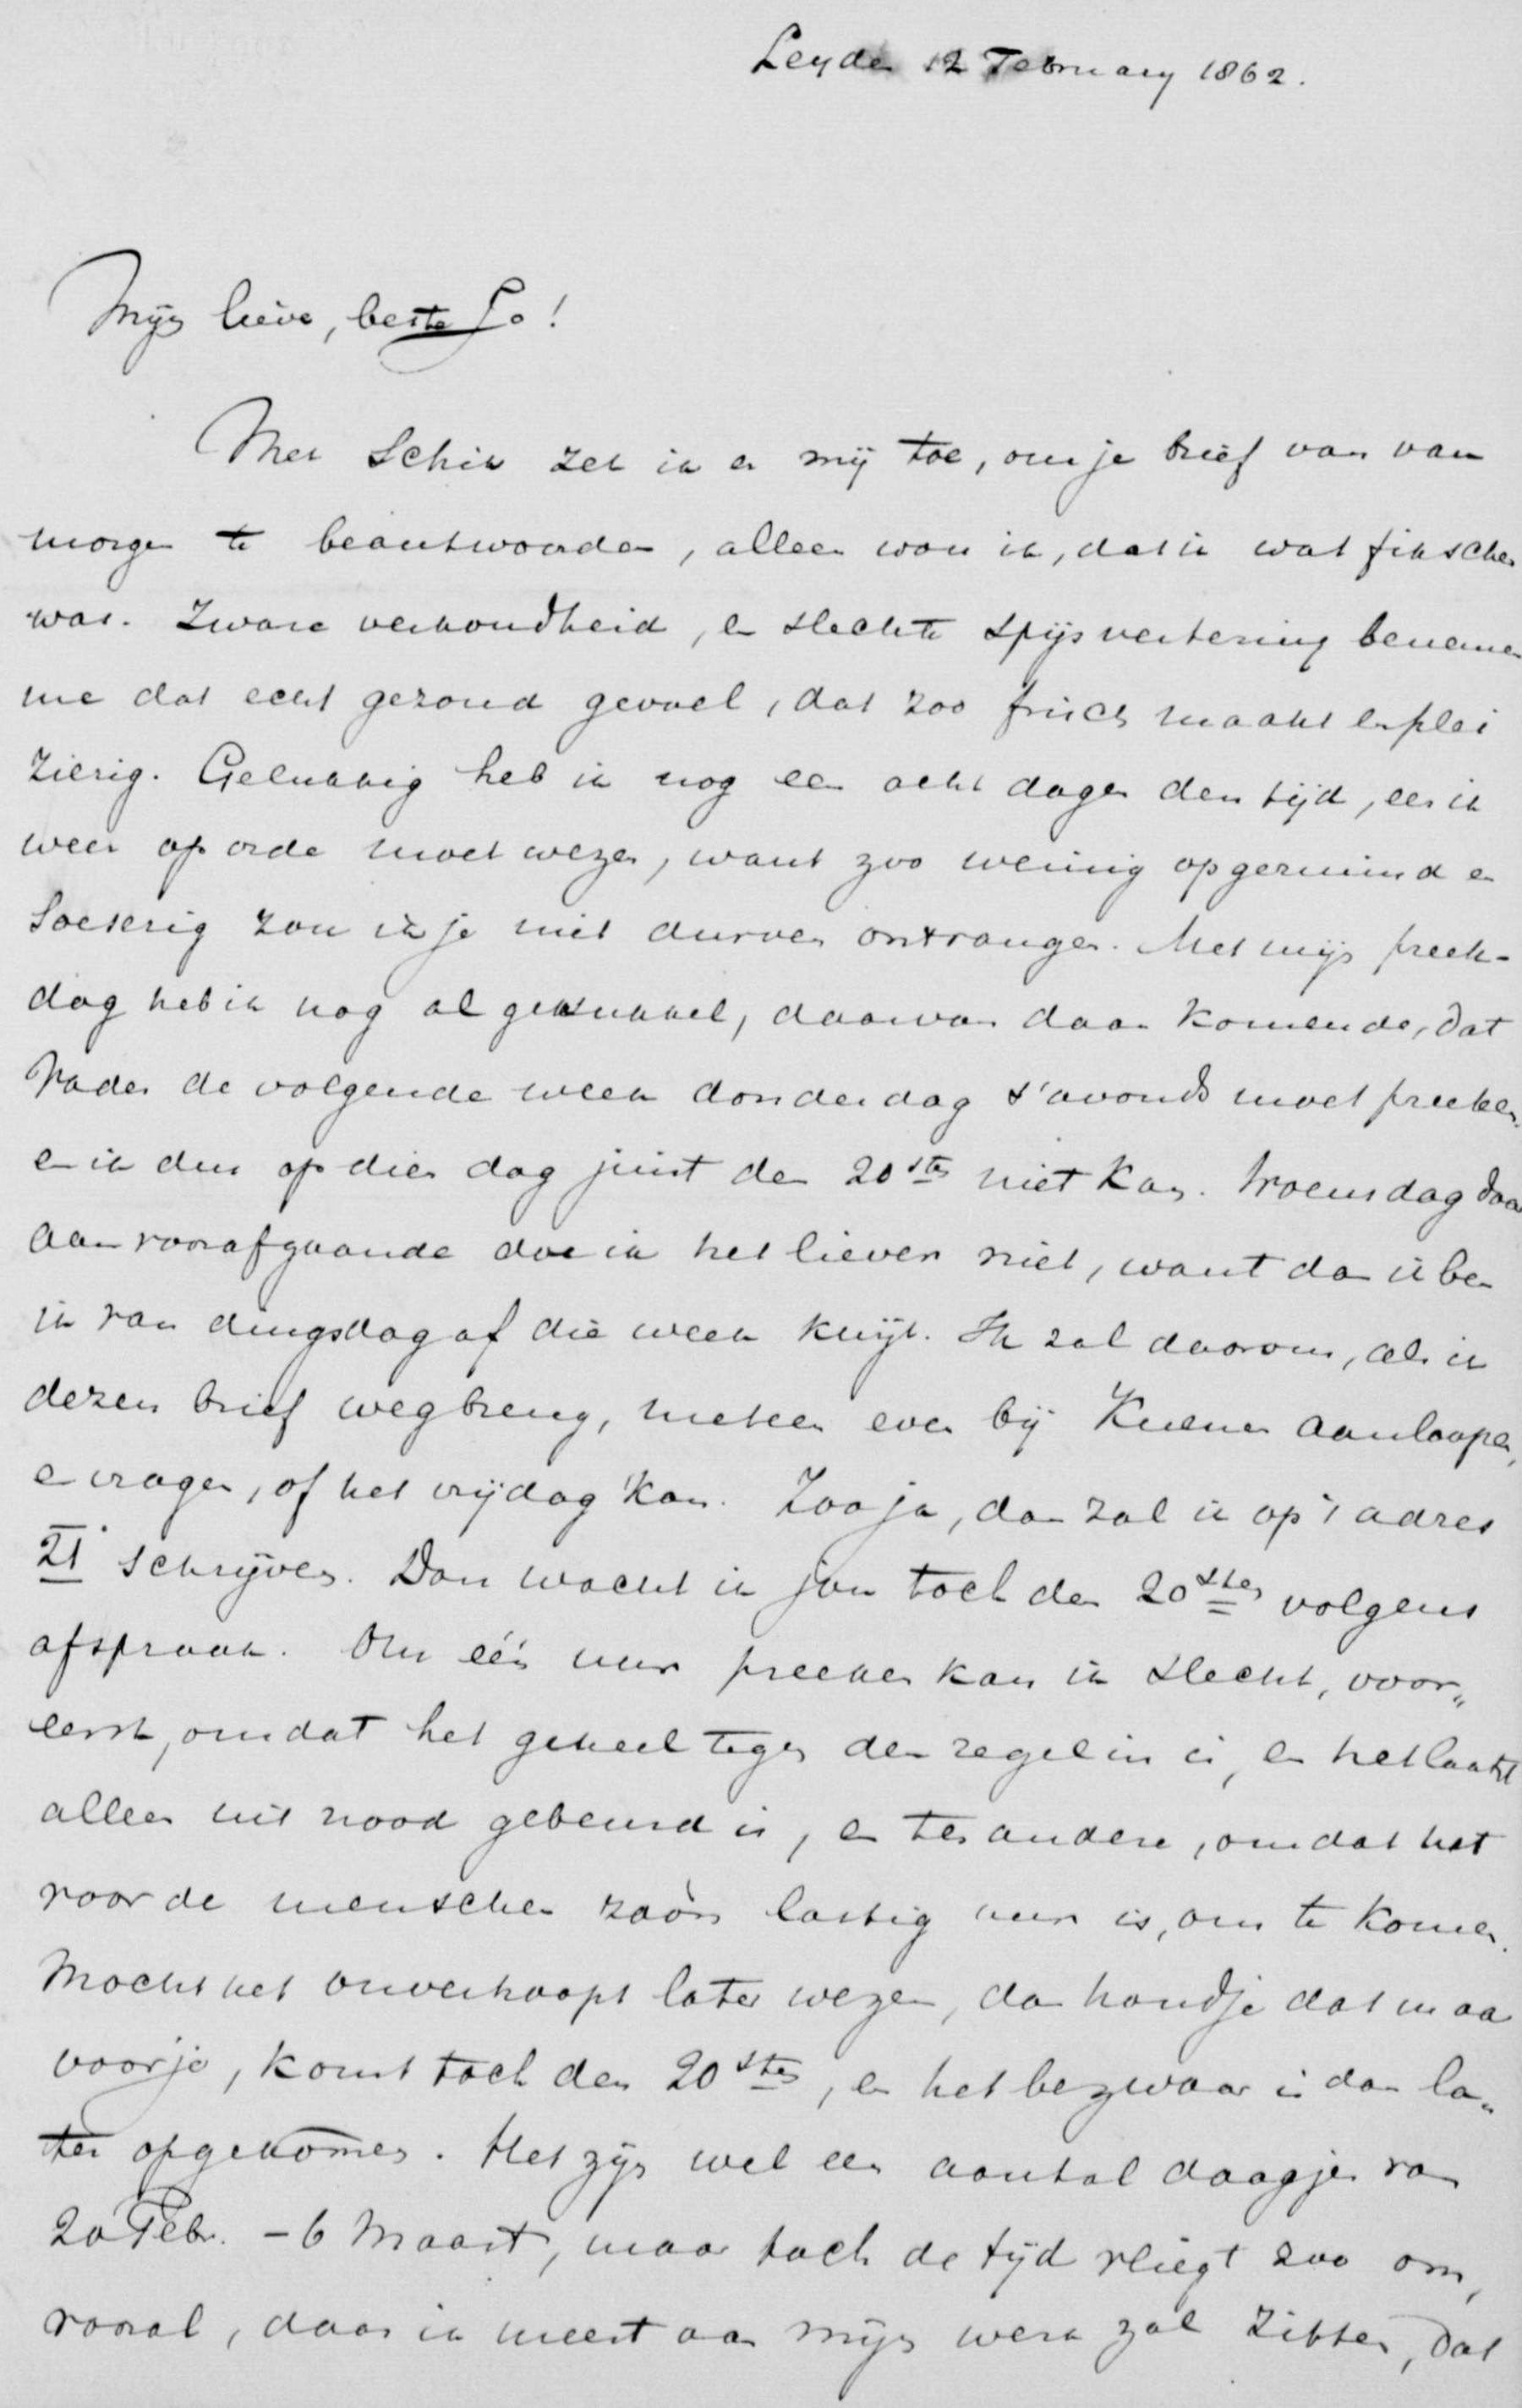 Leyden 12 February 1862.
Mijn lieve, beste Jo!
Met schik zet ik er mij toe, om je brief van van
morgen te beantwoorden, alleen wou ik, dat ik wat fikscher
was. Zware verkoudheid, en slechte spijsvertering benemen
me dat echt gezond gevoel, dat zoo frisch maakt en plei
zierig. Gelukkig heb ik nog een acht dagen den tijd, eer ik
weer op orde moet wezen, want zoo weinig opgeruimd en
soeserig zou ik je niet durven ontvangen. Met mijn preek-
dag heb ik nog al gesukkel, daarvan daan komende, dat
Vader de volgende week donderdag s'avonds moet preeken
en ik dus op dien dag juist den 20sten niet kan. Woensdag daar
aan voorafgaande doe ik het liever niet, want dan ben
ik van dingsdag af die week kwijt. Ik zal daarom, als ik
dezen brief wegbreng, meteen even bij Kuenen aanloopen,
en vragen, of het vrijdag kan. Zoo ja, dan zal ik op 't adres
21 schrijven. Dan wacht ik jou toch den 20sten volgens
afspraak. Om één uur preeken kan ik slecht, voor„
eerst, omdat het geheel tegen den regel in is, en het laatst
alleen uit nood gebeurd is, en ten andere, omdat het
voor de menschen zoo'n lastig uur is, om te komen.
Mocht het onverhoopt later wezen, dan houdje dat maar
voorje, komt toch den 20sten, en het bezwaar is dan la„
ter opgekomen. Het zijn wel een aantal daagjes van
20 Febr. - 6 Maart, maar toch de tijd vliegt zoo om,
vooral, daar ik meest aan mijn werk zal zitten, dat